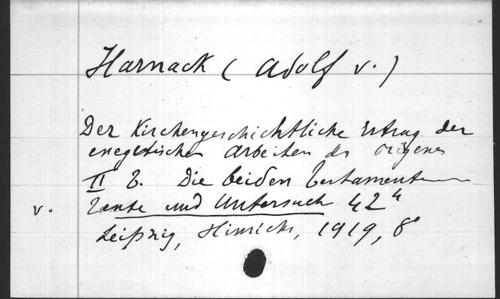 Harnack (Adolf v.)
Der Kirchengeschichtliche Ertrag der
exegetischen Arbeiten des Origenes
II B. Die beiden Testamente
v. Texte und Untersuch 42 4
Leipzig, Hinrichs, 1919, 8°